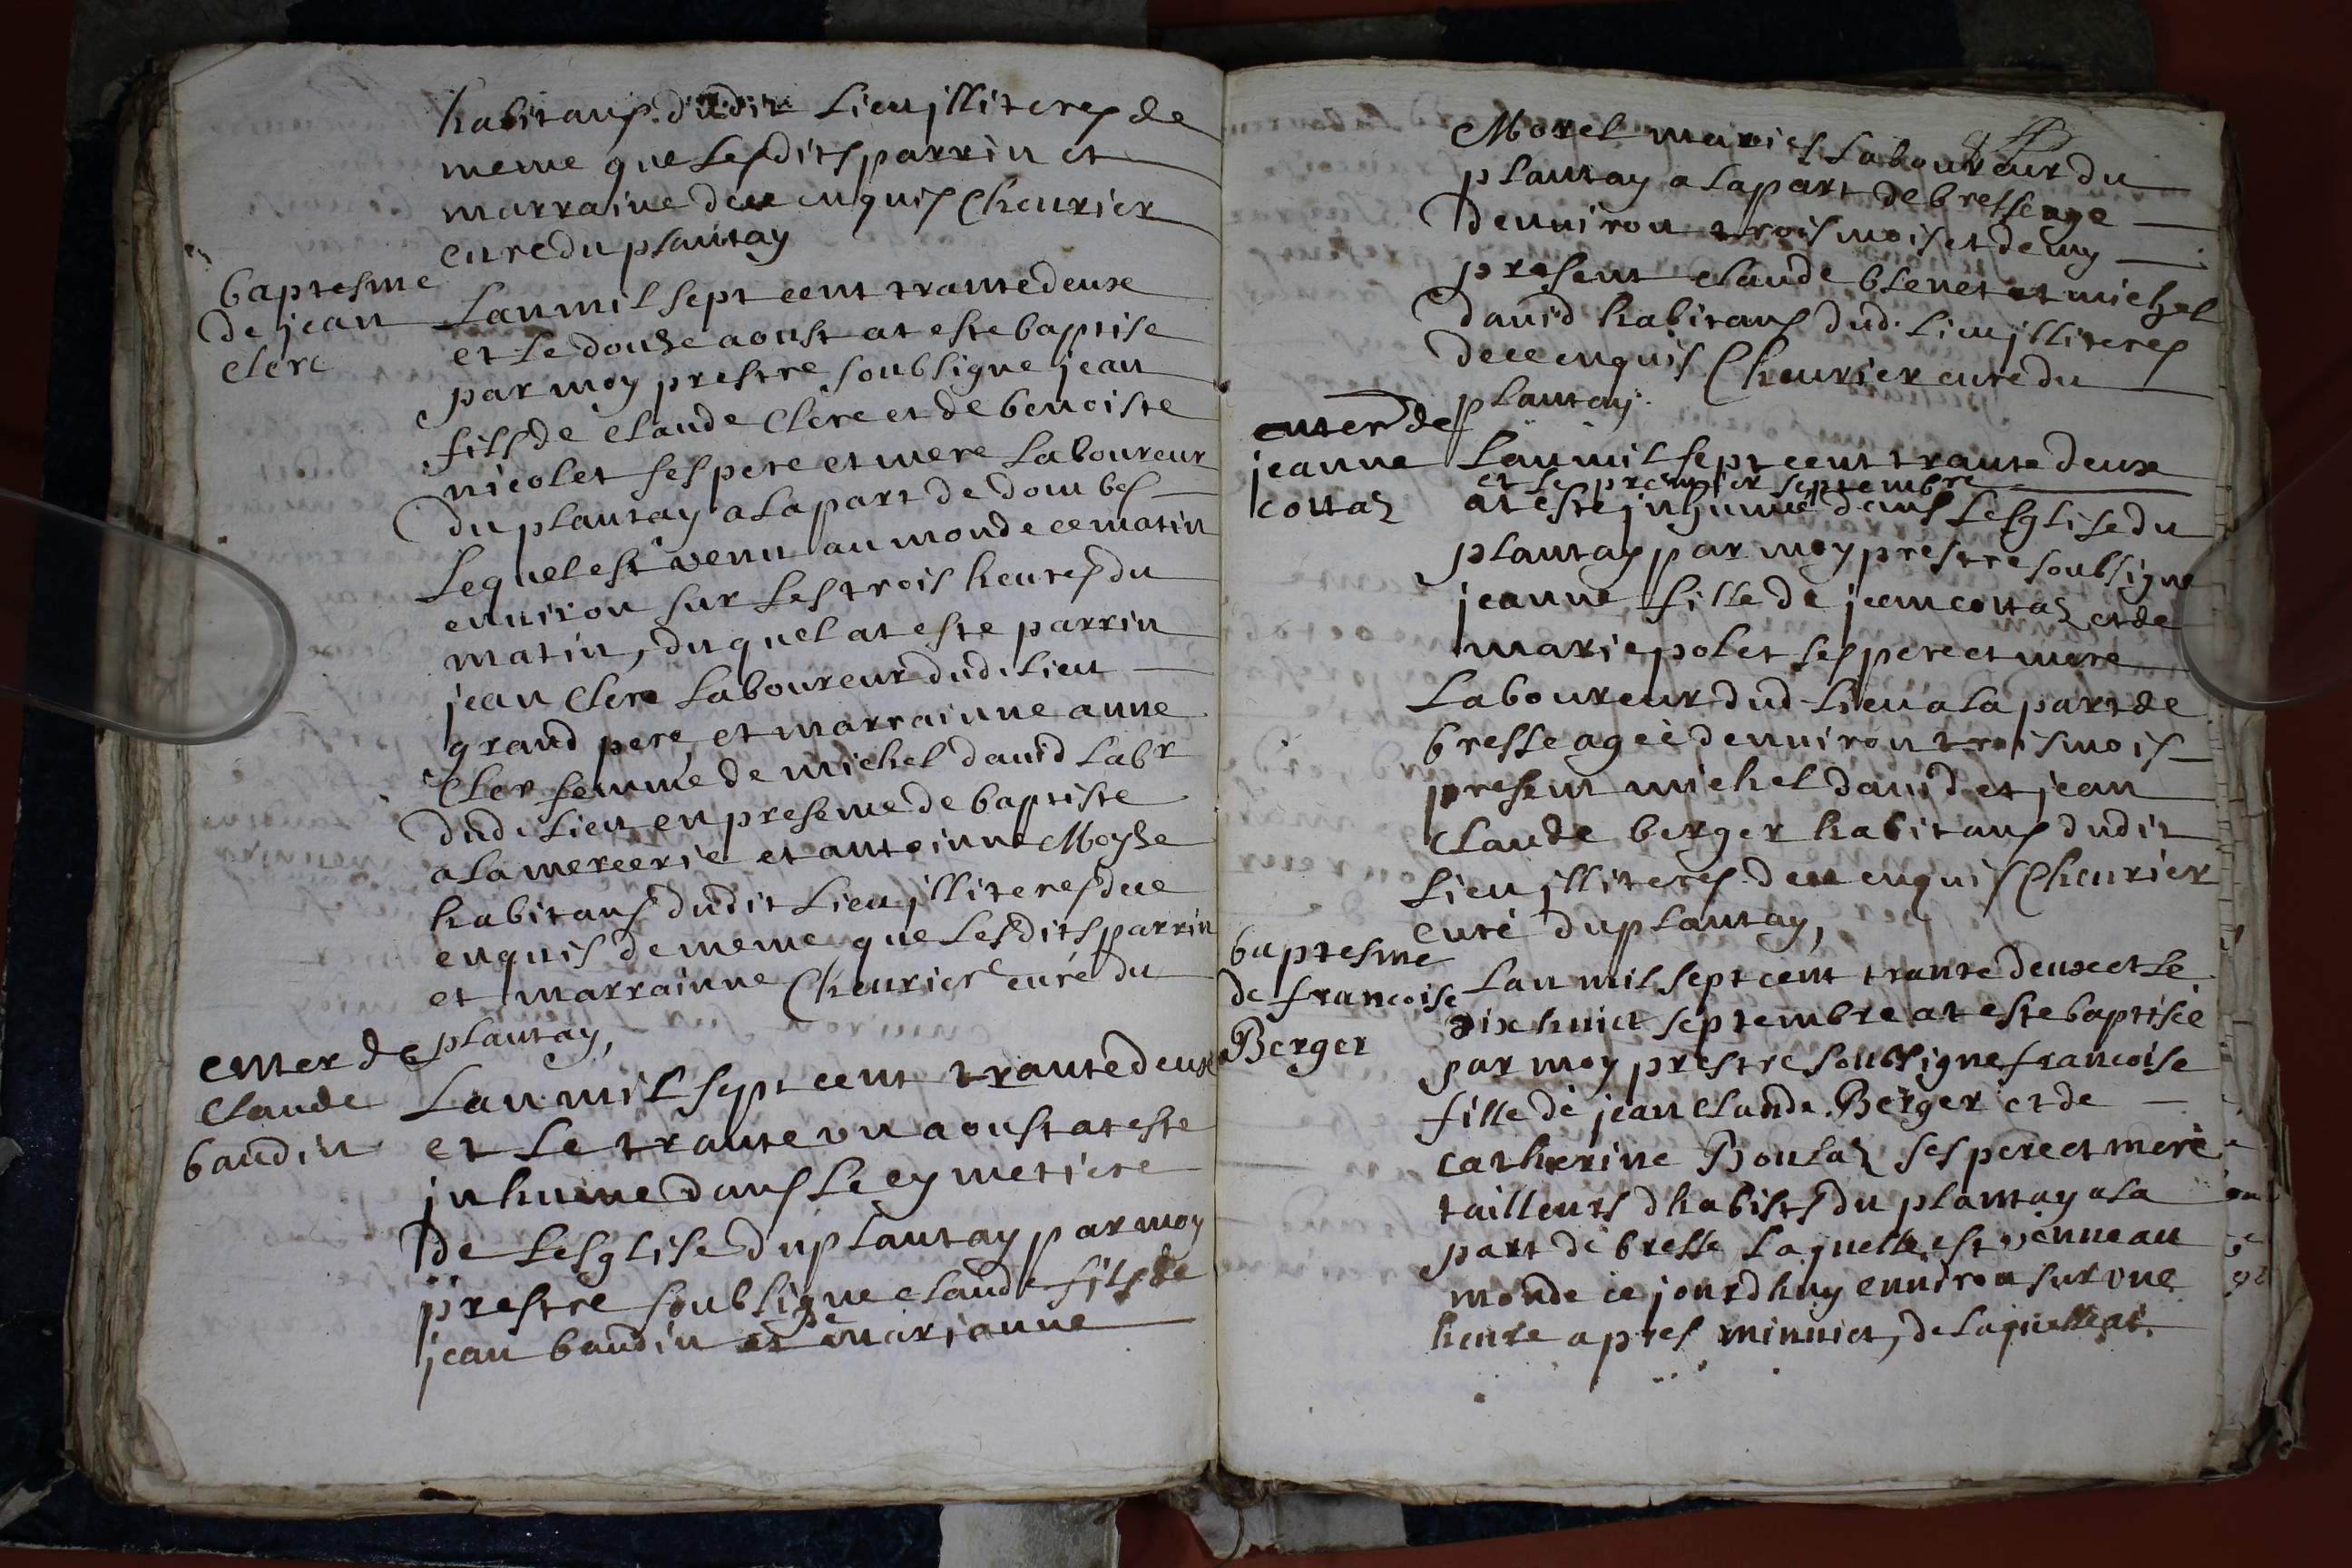 habitans dudit Lieu jlliteres de
meme que Lesdits parrin et
marraine de ce enquis Cheurier
curé du plantay
baptesme
de jean
clerc
Lan mil sept cent trante deux
et Le douze aoust at este baptise
par moy prestre soubsigne jean
fils de claude Clerc et de benoiste
nicolet ses pere et mere Laboureur
du plantay a La part de dombes
Lequel est venu au monde ce matin
enuiron sur Les trois heures du
matin, duquel at este parrin
jean Clerc Laboureur dud. Lieu
grand pere, et marrainne anne
Cler femme de michel dauid Labr
dud. Lieu en presence de baptiste
alamercerie et antoinne Moyse
habitans dudit Lieu jlliteres de ce
enquis de meme que Lesdits parrin
et marrainne Cheurier curé du
plantay,
enter de
claude
baudin
Lan mil sept cent trante deux
et Le trante vn aoust at este
jnhume dans Le cymetiere
de Lesglise du plantay par moy
prestre soubsigne claude fils de
jean baudin et de marianne
Morel mariés Laboureur du
plantay a La part de bresse age
denuiron trois mois et demy
present claude blenet et michel
dauid habitans dud. Lieu jlliteres
de ce enquis Cheurier curé du
plantay.
enter de
jeanne
cottaz
Lan mil sept cent trante deux
et Le premier septembre
at este jnhumé dans Lesglise du
plantay par moy prestre soubsigne
jeanne fille de jean cottaz et de
marie polet ses pere et mere
Laboureur dud. Lieu a La part de
bresse ageé denuiron trois mois
present michel dauid et jean
claude berger habitans dudit
Lieu jlliteres de ce enquis Cheurier
curé du plantay,
baptesme
de francoise
Berger
Lan mil sept cent trante deux et Le
dix huict septembre at este baptiseé
par moy prestre soubsigne francoise
fille de jean claude Berger et de
catherine Boulaz ses pere et mere
tailleurs dhabists du plantay a La
part de bresse Laquelle est venue au
monde ce jourdhuy enuiron sur vne
heure apres minnict, de Laquelle at